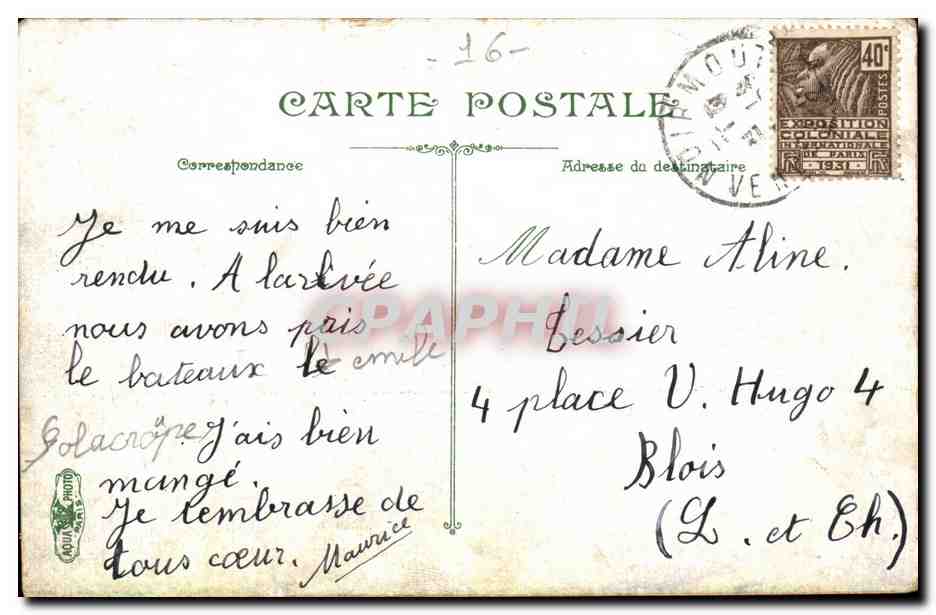 -16-
CARTE POSTALE
Correspondance
Adresse du destinataire
NOIRMOUT
VEN
40c
POSTES
EXPOSITION
COLONIALE
INTERNATIONALE
DE PARIS
1931
Je me suis bien
rendu. A larivée
nous avons pris
le bateaux le emile
Solacrôpe. J'ais bien
mangé.
Je tembrasse de
tous cœur. Maurice
Madame Aline.
Tessier
4 place V. Hugo 4
Blois
(L. et Ch.)
AQUA PHOTO
PARIS
CPAPHIL